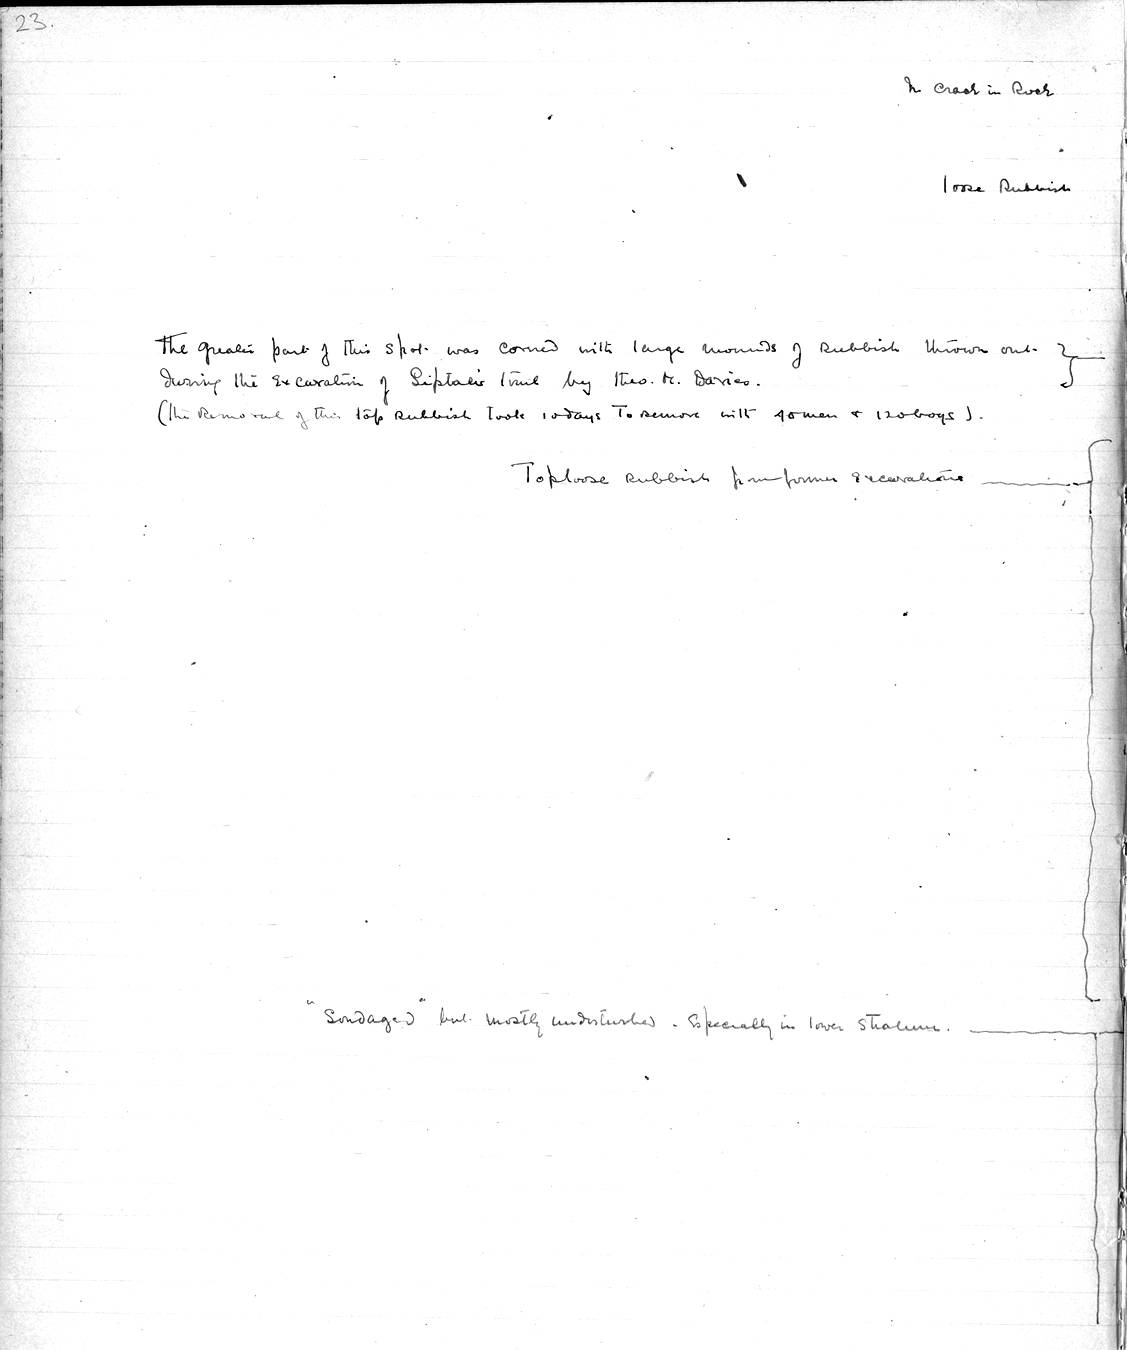 23.
In crack in Rock
loose Rubbish
The greater part of this spot was covered with large mounds of Rubbish thrown out
during the Excavation of Siptah's tomb by Theo. M. Davies.
(The Removal of this top Rubbish took 10 days To remove with 40 men & 120 boys).
Top loose Rubbish from former Excavations
"Sondaged" but mostly undisturbed. Especially in lower Stratum.